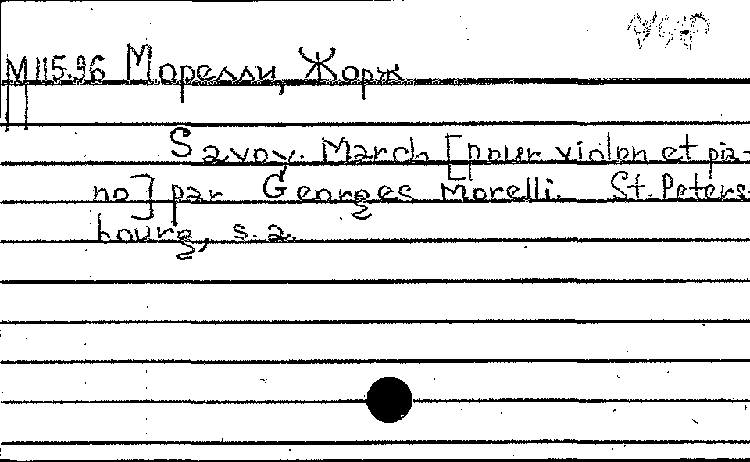 М115.96 Морелли, Жорж
Savoy. March [pour violon et pia-
no] par Georges Morelli. St.Peters-
bourg, s. a.